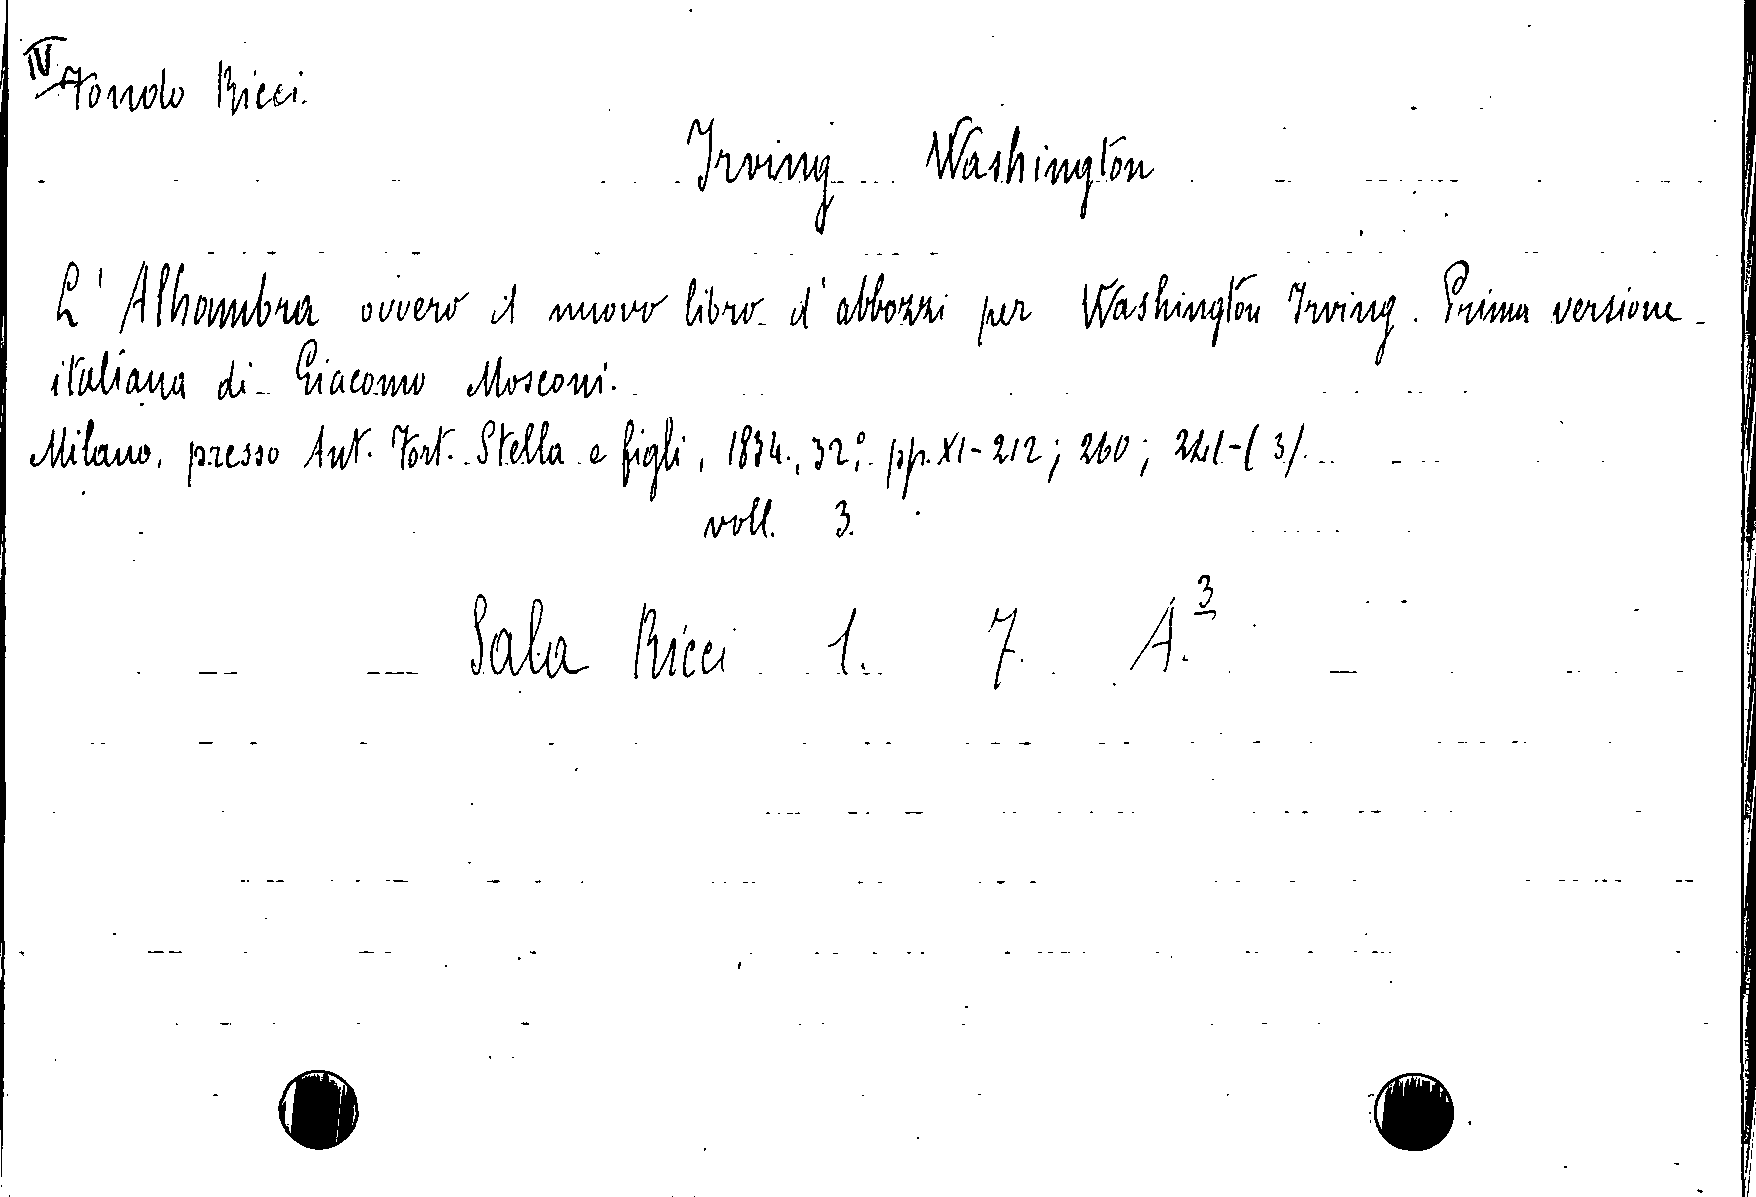 IV
Fondo Ricci.
Irving Washington
L' Alhambra ovvero il nuovo libro d'abbozzi per Washington Irving. Prima versione
italiana di Giacomo Mosconi.
Milano, presso Ant. Fort. Stella e figli, 1834., 32°. pp. XI-212; 260; 241-(3).
voll. 3.
Sala Ricci 1. 7. A.3